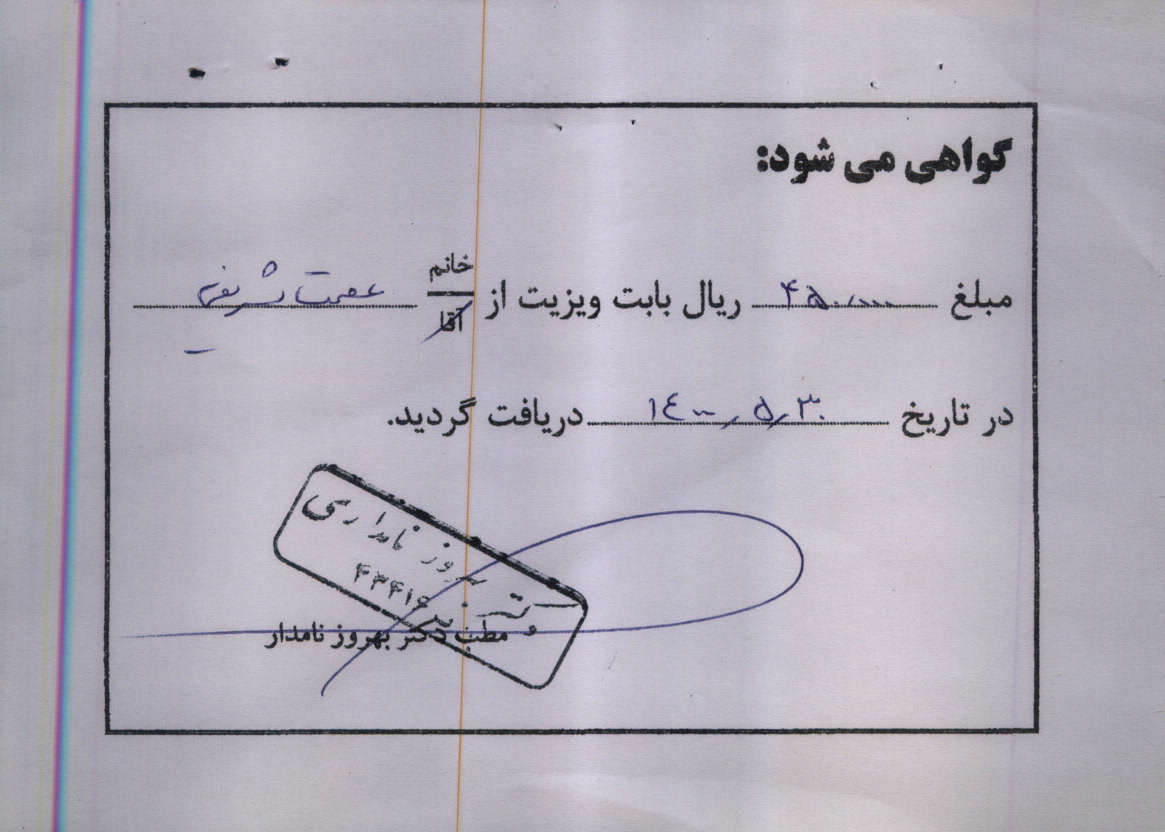 گواهی می شود:
مبلغ ۴۵۰/۰۰۰ ریال بابت ویزیت از خانم / آقا عصمت شریفی
در تاریخ ۱۴۰۰/۵/۳۰ دریافت گردید.
دکتر بهروز نامداری
مطب دکتر بهروز نامدار